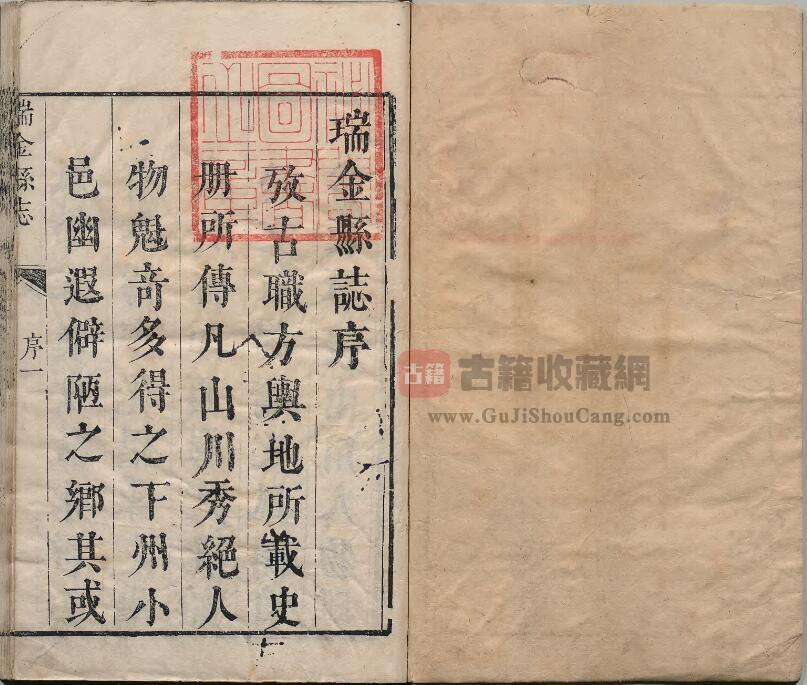 瑞金縣誌序
攷古職方輿地所載史
册所傳凡山川秀絕人
物魁竒多得之下州小
邑幽遐僻陋之鄉其或
瑞金縣志
序一
古籍
古籍收藏網
www.GuJiShouCang.com